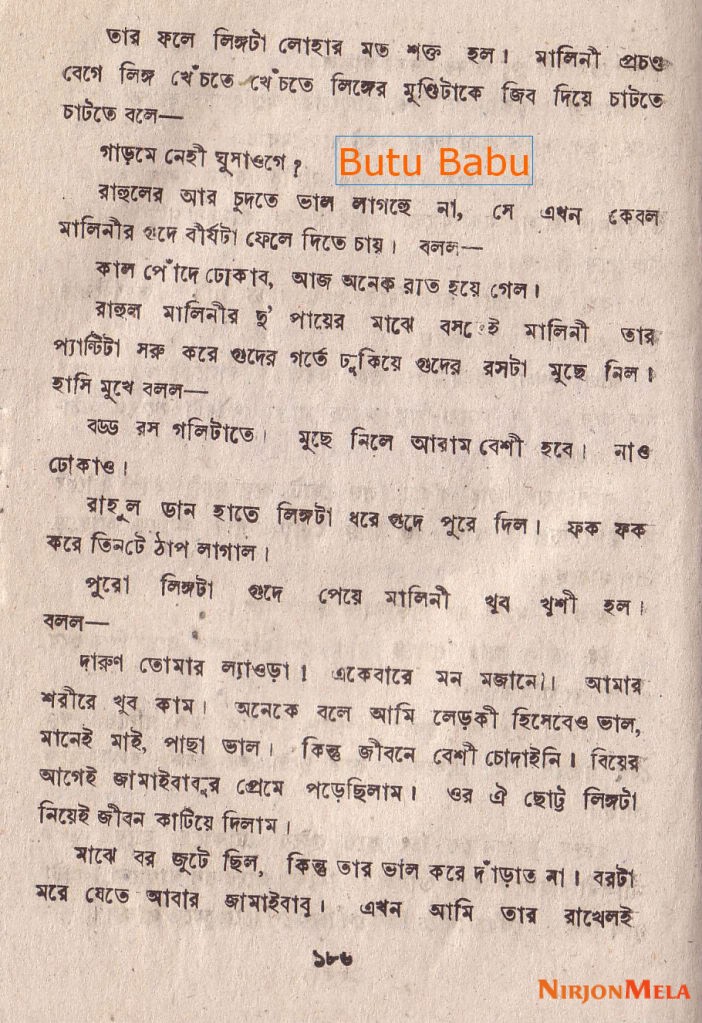 তার ফলে লিঙ্গটা লোহার মত শক্ত হল। মালিনী প্রচণ্ড
বেগে লিঙ্গ খেঁচতে খেঁচতে লিঙ্গের মুণ্ডিটাকে জিব দিয়ে চাটতে
চাটতে বলে—
গাড়মে নেহী ঘুসাওগে?
Butu Babu
রাহুলের আর চুদতে ভাল লাগছে না, সে এখন কেবল
মালিনীর গুদে বীর্যটা ফেলে দিতে চায়। বলল—
কাল পোঁদে ঢোকাব, আজ অনেক রাত হয়ে গেল।
রাহুল মালিনীর দু' পায়ের মাঝে বসতেই মালিনী তার
প্যান্টিটা সরু করে গুদের গর্তে ঢুকিয়ে গুদের রসটা মুছে নিল।
হাসি মুখে বলল—
বড্ড রস গলিটাতে। মুছে নিলে আরাম বেশী হবে। নাও
ঢোকাও।
রাহুল ডান হাতে লিঙ্গটা ধরে গুদে পুরে দিল। ফক ফক
করে তিনটে ঠাপ লাগাল।
পুরো লিঙ্গটা গুদে পেয়ে মালিনী খুব খুশী হল।
বলল—
দারুণ তোমার ল্যাওড়া। একেবারে মন মজানো। আমার
শরীরে খুব কাম। অনেকে বলে আমি লেড়কী হিসেবেও ভাল,
মানেই মাই, পাছা ভাল। কিন্তু জীবনে বেশী চোদাইনি। বিয়ের
আগেই জামাইবাবুর প্রেমে পড়েছিলাম। ওর ঐ ছোট্ট লিঙ্গটা
নিয়েই জীবন কাটিয়ে দিলাম।
মাঝে বর জুটে ছিল, কিন্তু তার ভাল করে দাঁড়াত না। বরটা
মরে যেতে আবার জামাইবাবু। এখন আমি তার রাখেলই
১৮৬
NIRJONMELA